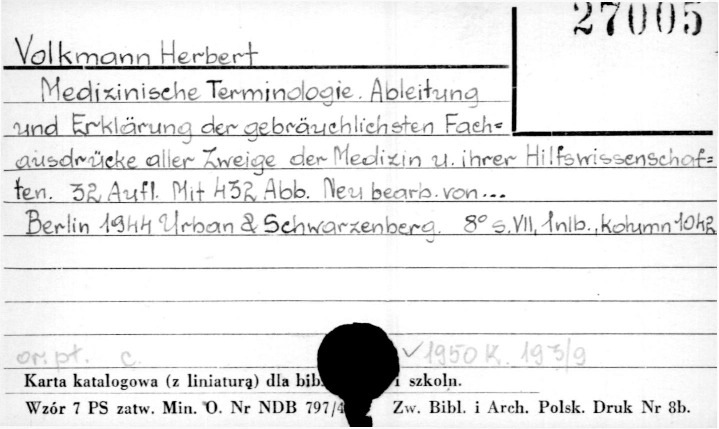 27005
Volkmann Herbert
Medizinische Terminologie. Ableitung
und Erklärung der gebräuchlichsten Fach=
ausdrücke aller Zweige der Medizin u. ihrer Hilfswissenschaf=
ten. 32 Aufl. Mit 432 Abb. Neu bearb. von...
Berlin 1944 Urban & Schwarzenberg. 8° s. VII, 1nlb., kolumn 1042
opr. pł. c. 1950 K. 193/9
Karta katalogowa (z liniaturą) dla bib i szkoln.
Wzór 7 PS zatw. Min. O. Nr NDB 797/4 Zw. Bibl. i Arch. Polsk. Druk Nr 8b.